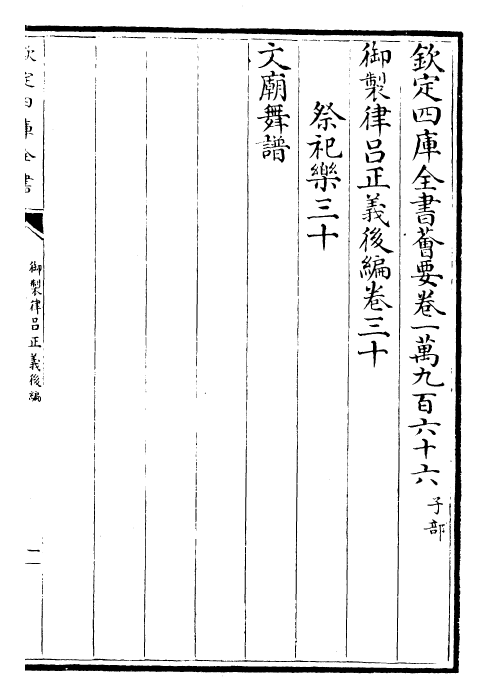 欽定四庫全書薈要卷一萬九百六十六 子部
御製律呂正義後編卷三十
祭祀樂三十
文廟舞譜
欽定四庫全書
御製律呂正義後編
一